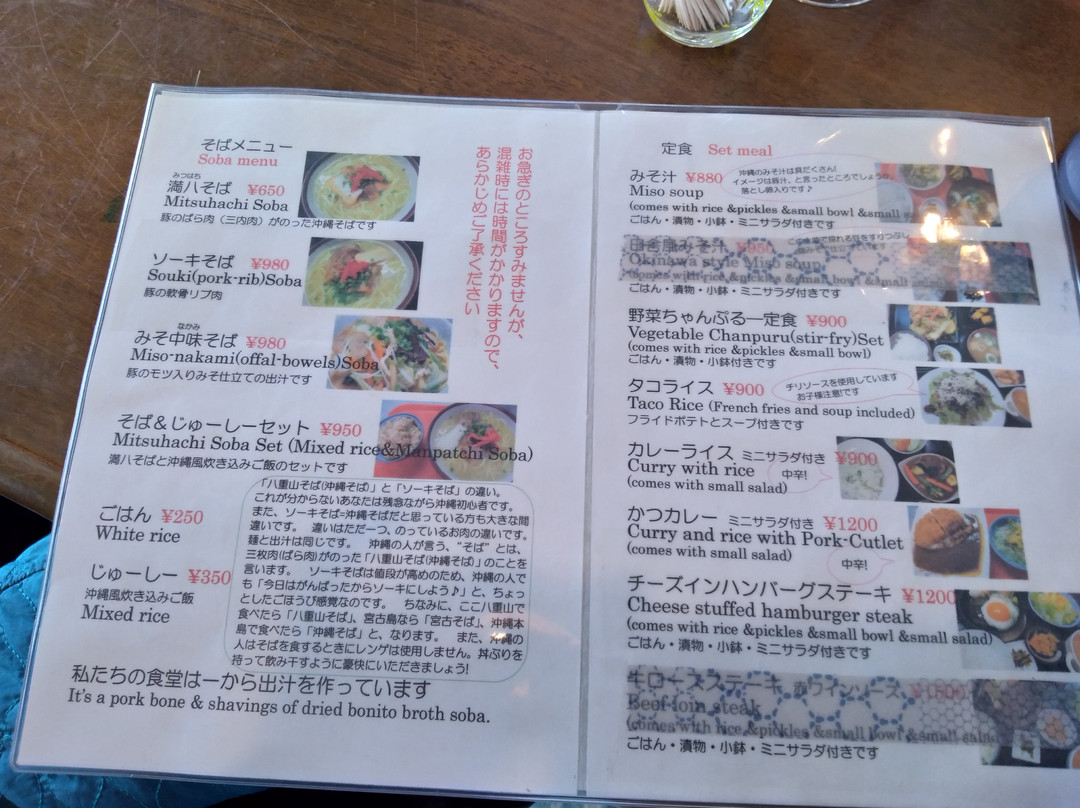 そばメニュー
Soba menu
みつはち
満八そば ¥650
Mitsuhachi Soba
豚のばら肉（三内肉）がのった沖縄そばです
ソーキそば ¥980
Souki(pork-rib)Soba
豚の軟骨リブ肉
なかみ
みそ中味そば ¥980
Miso-nakami(offal-bowels)Soba
豚のモツ入りみそ仕立ての出汁です
そば＆じゅーしーセット ¥950
Mitsuhachi Soba Set (Mixed rice&Manpatchi Soba)
満八そばと沖縄風炊き込みご飯のセットです
ごはん ¥250
White rice
じゅーしー ¥350
沖縄風炊き込みご飯
Mixed rice
お急ぎのところすみませんが、
混雑時には時間がかかりますので、
あらかじめご了承ください
「八重山そば(沖縄そば)」と「ソーキそば」の違い。
これが分からないあなたは残念ながら沖縄初心者です。
また、ソーキそば=沖縄そばだと思っている方も大きな間
違いです。 違いはただ一つ、のっているお肉の違いです。
麺と出汁は同じです。 沖縄の人が言う、“そば”とは、
三枚肉(ばら肉)がのった「八重山そば(沖縄そば」のことを
言います。 ソーキそばは値段が高めのため、沖縄の人で
も「今日はがんばったからソーキにしよう♪」と、ちょっ
としたごほうび感覚なのです。 ちなみに、ここ八重山で
食べたら「八重山そば」、宮古島なら「宮古そば」、沖縄本
島で食べたら「沖縄そば」と、なります。 また、沖縄の
人はそばを食するときにレンゲは使用しません。丼ぶりを
持って飲み干すように豪快にいただきましょう!
私たちの食堂は一から出汁を作っています
It's a pork bone & shavings of dried bonito broth soba.
定食 Set meal
みそ汁 ¥880
沖縄のみそ汁は具だくさん!
イメージは豚汁、と言ったところでしょうか。
落とし卵入りです♪
Miso soup
(comes with rice &pickles &small bowl &small
ごはん・漬物・小鉢・ミニサラダ付きです
田舎風みそ汁 ¥980
Okinawa style Miso soup
(comes with rice &pickles &small bowl &small
ごはん・漬物・小鉢・ミニサラダ付きです
野菜ちゃんぷるー定食 ¥900
Vegetable Chanpuru(stir-fry)Set
(comes with rice &pickles &small bowl)
ごはん・漬物・小鉢付きです
タコライス ¥900
チリソースを使用しています
お子様注意!です
Taco Rice (French fries and soup included)
フライドポテトとスープ付きです
カレーライス ミニサラダ付き ¥900
Curry with rice
中辛!
(comes with small salad)
かつカレー ミニサラダ付き ¥1200
Curry and rice with Pork-Cutlet
(comes with small salad)
中辛!
チーズインハンバーグステーキ ¥1200
Cheese stuffed hamburger steak
(comes with rice &pickles &small bowl &small salad)
ごはん・漬物・小鉢・ミニサラダ付きです
牛ロースステーキ 赤ワインソース ¥1500
Beef loin steak
(comes with rice &pickles &small bowl &small salad
ごはん・漬物・小鉢・ミニサラダ付きです